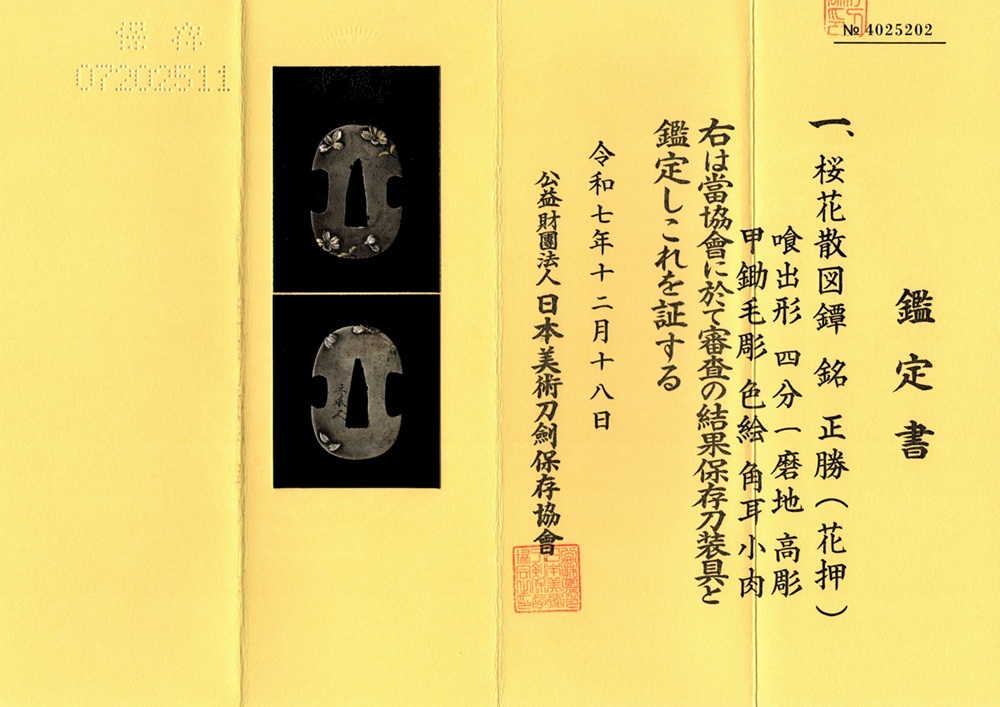 № 4025202
鑑定書
一、桜花散図鐔 銘 正勝（花押）
喰出形 四分一磨地 高彫
甲鋤毛彫 色絵 角耳小肉
右は當協會に於て審査の結果保存刀装具と
鑑定しこれを証する
令和七年十二月十八日
公益財團法人 日本美術刀劍保存協會
保存
07202511